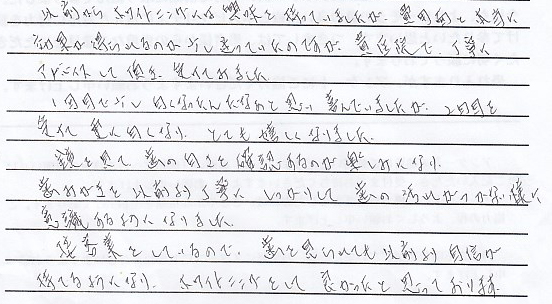 以前からホワイトニングには興味を持っていましたが、費用面と本当に
効果が得られるのか少し迷っていたのですが、責任後で、丁寧に
アドバイスして頂き、受けてみました。
1回目で少し白くなったんだなあと思い喜んでいましたが、2回目を
受けて更に白くなり、とても嬉しくなりました。
鏡を見て、歯の白さを確認するのが楽しみになり、
歯みがきを以前より丁寧にしっかりして歯の汚れがつかない様に
意識する様になりました。
接客業をしているので、歯を見られても以前より自信が
持てる様になり、ホワイトニングをして良かったと思っております。